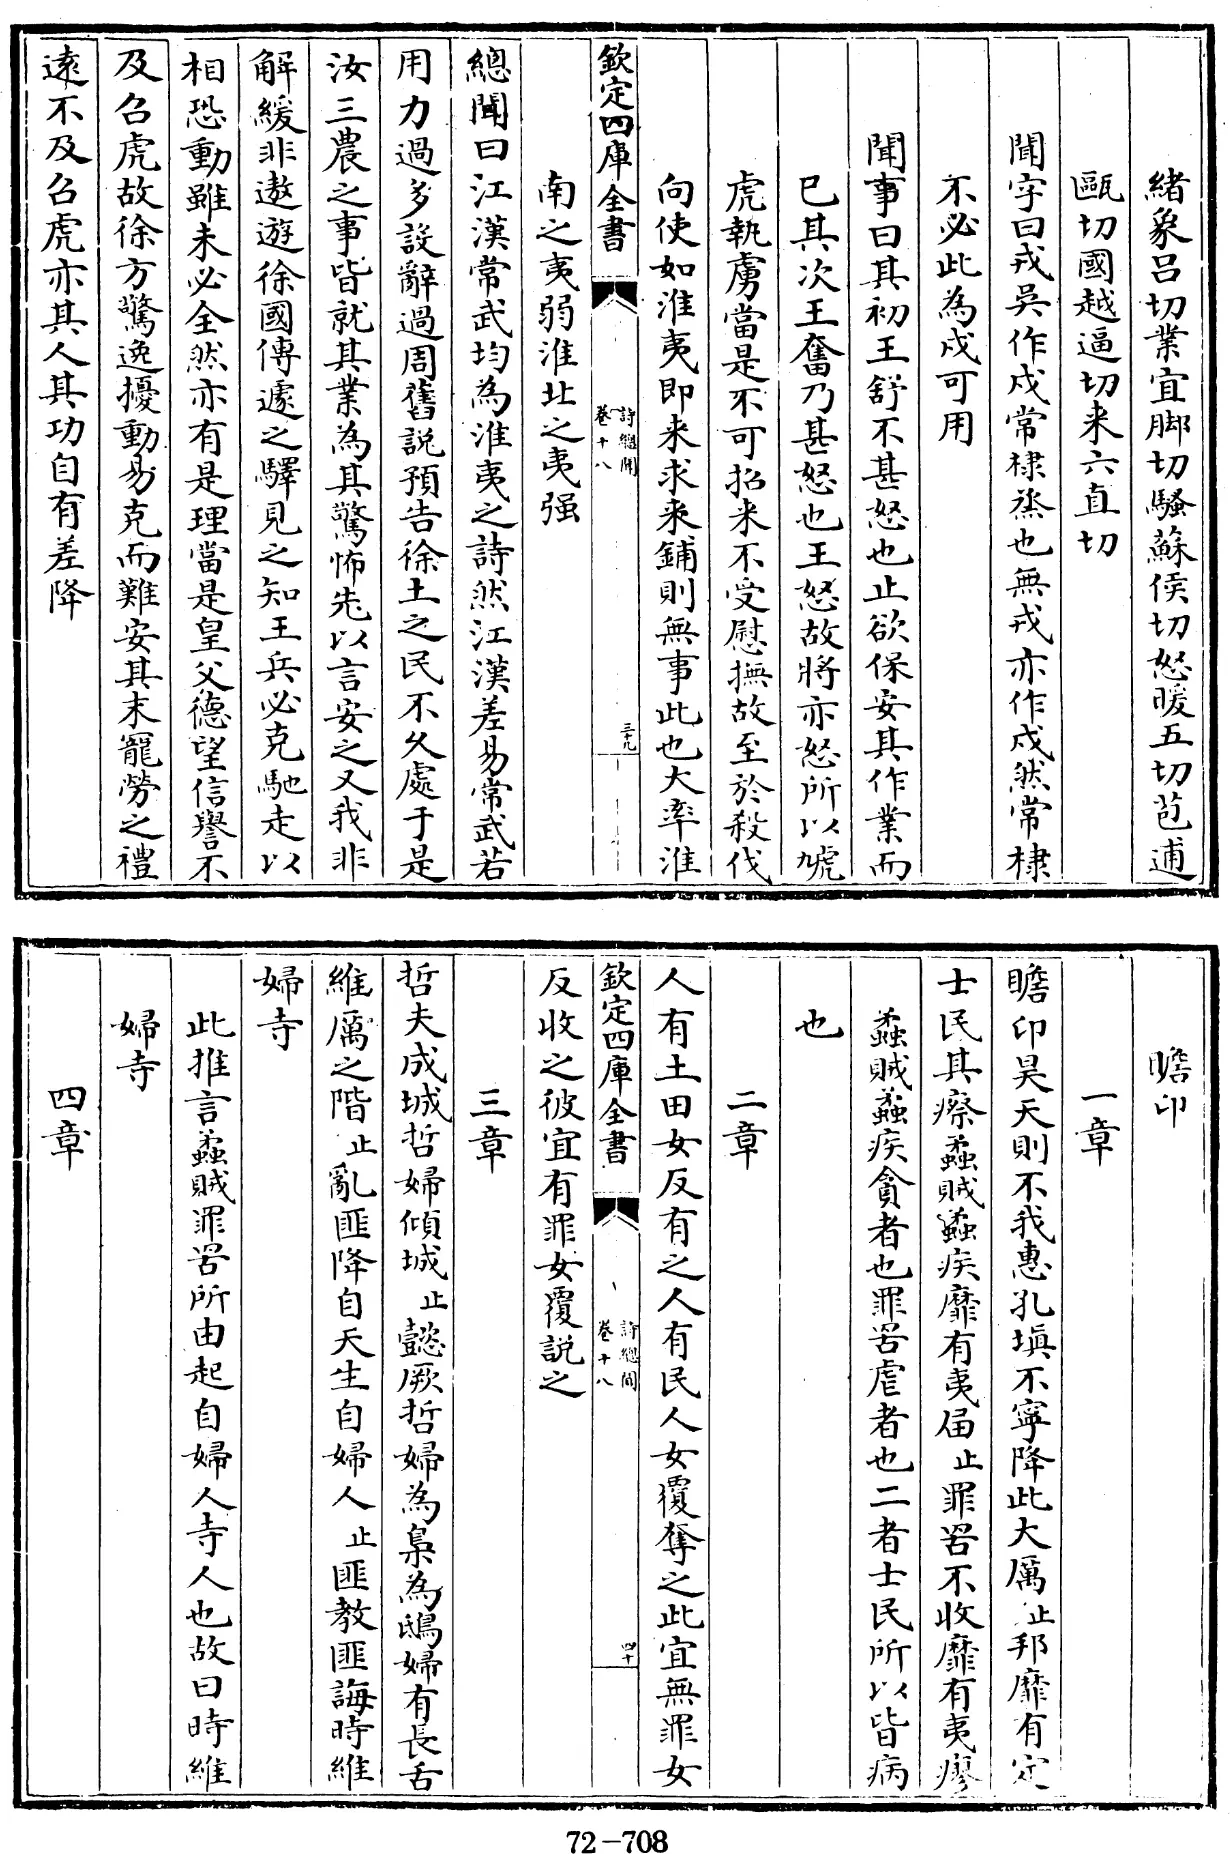 緒象呂切業宜脚切騷蘇侯切怒暖五切苞逋
甌切國越逼切来六直切
聞字曰戎吳作戍常棣烝也無戎亦作戍然常棣
不必此為戍可用
聞事曰其初王舒不甚怒也止欲保安其作業而
已其次王奮乃甚怒也王怒故將亦怒所以虓
虎執虜當是不可招来不受慰撫故至於殺伐
向使如淮夷即来求来鋪則無事此也大率淮
南之夷弱淮北之夷强
欽定四庫全書
詩總聞
卷十八
三十九
總聞曰江漢常武均為淮夷之詩然江漢差易常武若
用力過多設辭過周舊説預告徐土之民不久處于是
汝三農之事皆就其業為其驚怖先以言安之又我非
解緩非遨遊徐國傳遽之驛見之知王兵必克馳走以
相恐動雖未必全然亦有是理當是皇父德望信譽不
及召虎故徐方驚逸擾動易克而難安其末寵勞之禮
遠不及召虎亦其人其功自有差降
瞻卬
一章
瞻卬昊天則不我惠孔填不寧降此大厲止邦靡有定
士民其瘵蟊賊蟊疾靡有夷屆止罪罟不收靡有夷瘳
蟊賊蟊疾貪者也罪罟虐者也二者士民所以皆病
也
二章
人有土田女反有之人有民人女覆奪之此宜無罪女
反收之彼宜有罪女覆説之
欽定四庫全書
詩總聞
卷十八
四十
三章
哲夫成城哲婦傾城止懿厥哲婦為梟為鴟婦有長舌
維厲之階止亂匪降自天生自婦人止匪教匪誨時維
婦寺
此推言蟊賊罪罟所由起自婦人寺人也故曰時維
婦寺
四章
72-708